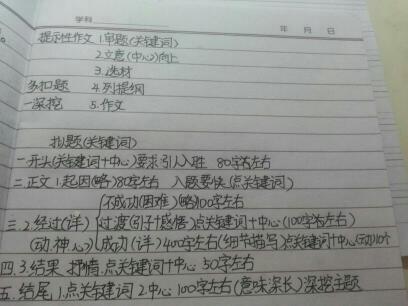 学科
年 月 日
提示性作文 1.审题(关键词)
2.立意(中心)向上
3.选材
多扣题 4.列提纲
一深挖 5.作文
拟题(关键词)
一.开头(关键词+中心)要求:引人入胜 80字左右
二.正文 1.起因(略)80字左右 入题要快(点关键词)
不成功(困难)略100字左右
三.2.经过(详) 过渡(句子感悟)点关键词+中心(100字左右)
(动.神.心) 成功(详)400字左右(细节描写)点关键词+中心(动)10个
四.3.结果 抒情.点关键词+中心 50字左右
五.结尾 1.点关键词 2.中心 100字左右(意味深长)深挖主题